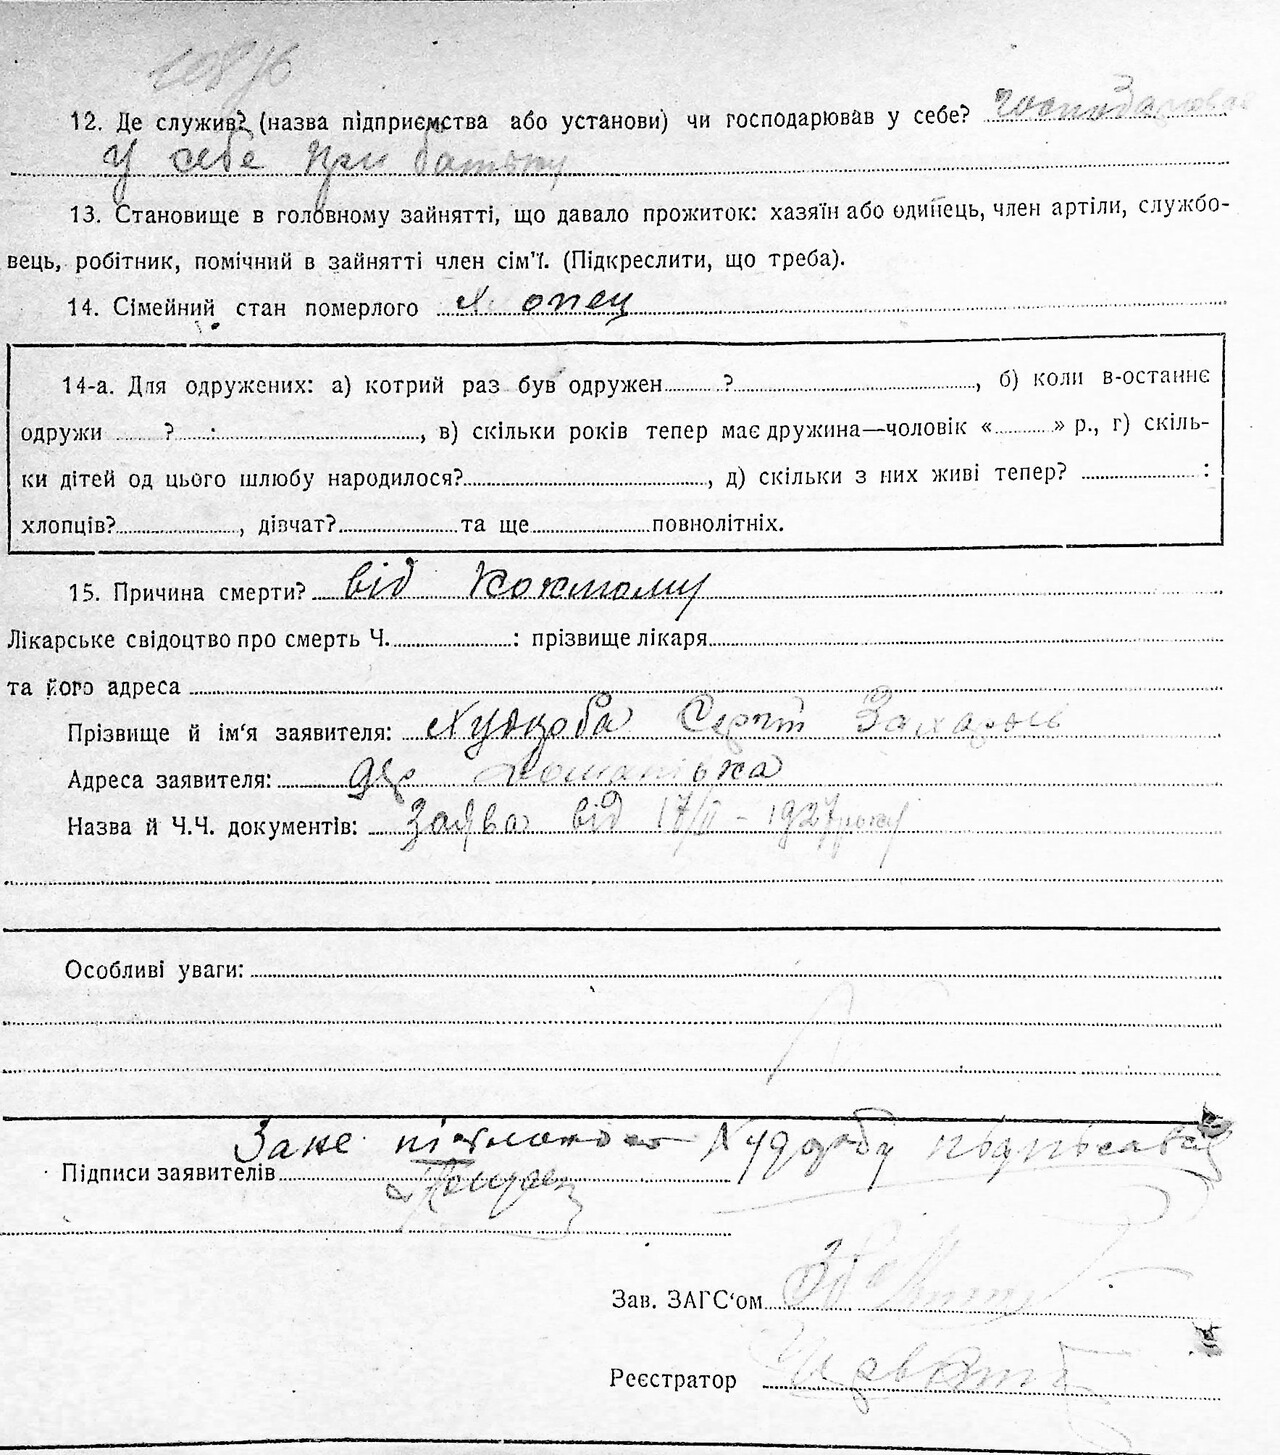 12. Де служив? (назва підприємства або установи) чи господарював у себе? господарював
у себе при батьку
13. Становище в головному зайнятті, що давало прожиток: хазяїн або одинець, член артіли, службо-
вець, робітник, помічний в зайнятті член сім'ї. (Підкреслити, що треба).
14. Сімейний стан померлого хлопец
14-а. Для одружених: а) котрий раз був одружен ? , б) коли в-останнє
одружи ? : , в) скільки років тепер має дружина—чоловік « » р., г) скіль-
ки дітей од цього шлюбу народилося? , д) скільки з них живі тепер? :
хлопців? , дівчат? та ще повнолітніх.
15. Причина смерти? від
Лікарське свідоцтво про смерть Ч. : прізвище лікаря
та його адреса
Прізвище й ім'я заявителя: Худоба Сергій Захаров
Адреса заявителя:
Назва й Ч.Ч. документів: Заява від 17/II - 1927 року
Особливі уваги:
За не Худобу підписався
Підписи заявителів
Зав. ЗАГС'ом
Реєстратор